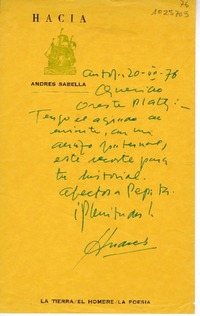 76
1025703
HACIA
ANDRES SABELLA
Antof., 20-VI-76
Querido
Oreste Plath:
Tengo el agrado de
enviarte, con un
abrazo fraternal,
este recorte para
tu historial.
Afectos a Pepita.
¡Plenitudes!
Andrés
LA TIERRA/EL HOMBRE/LA POESIA